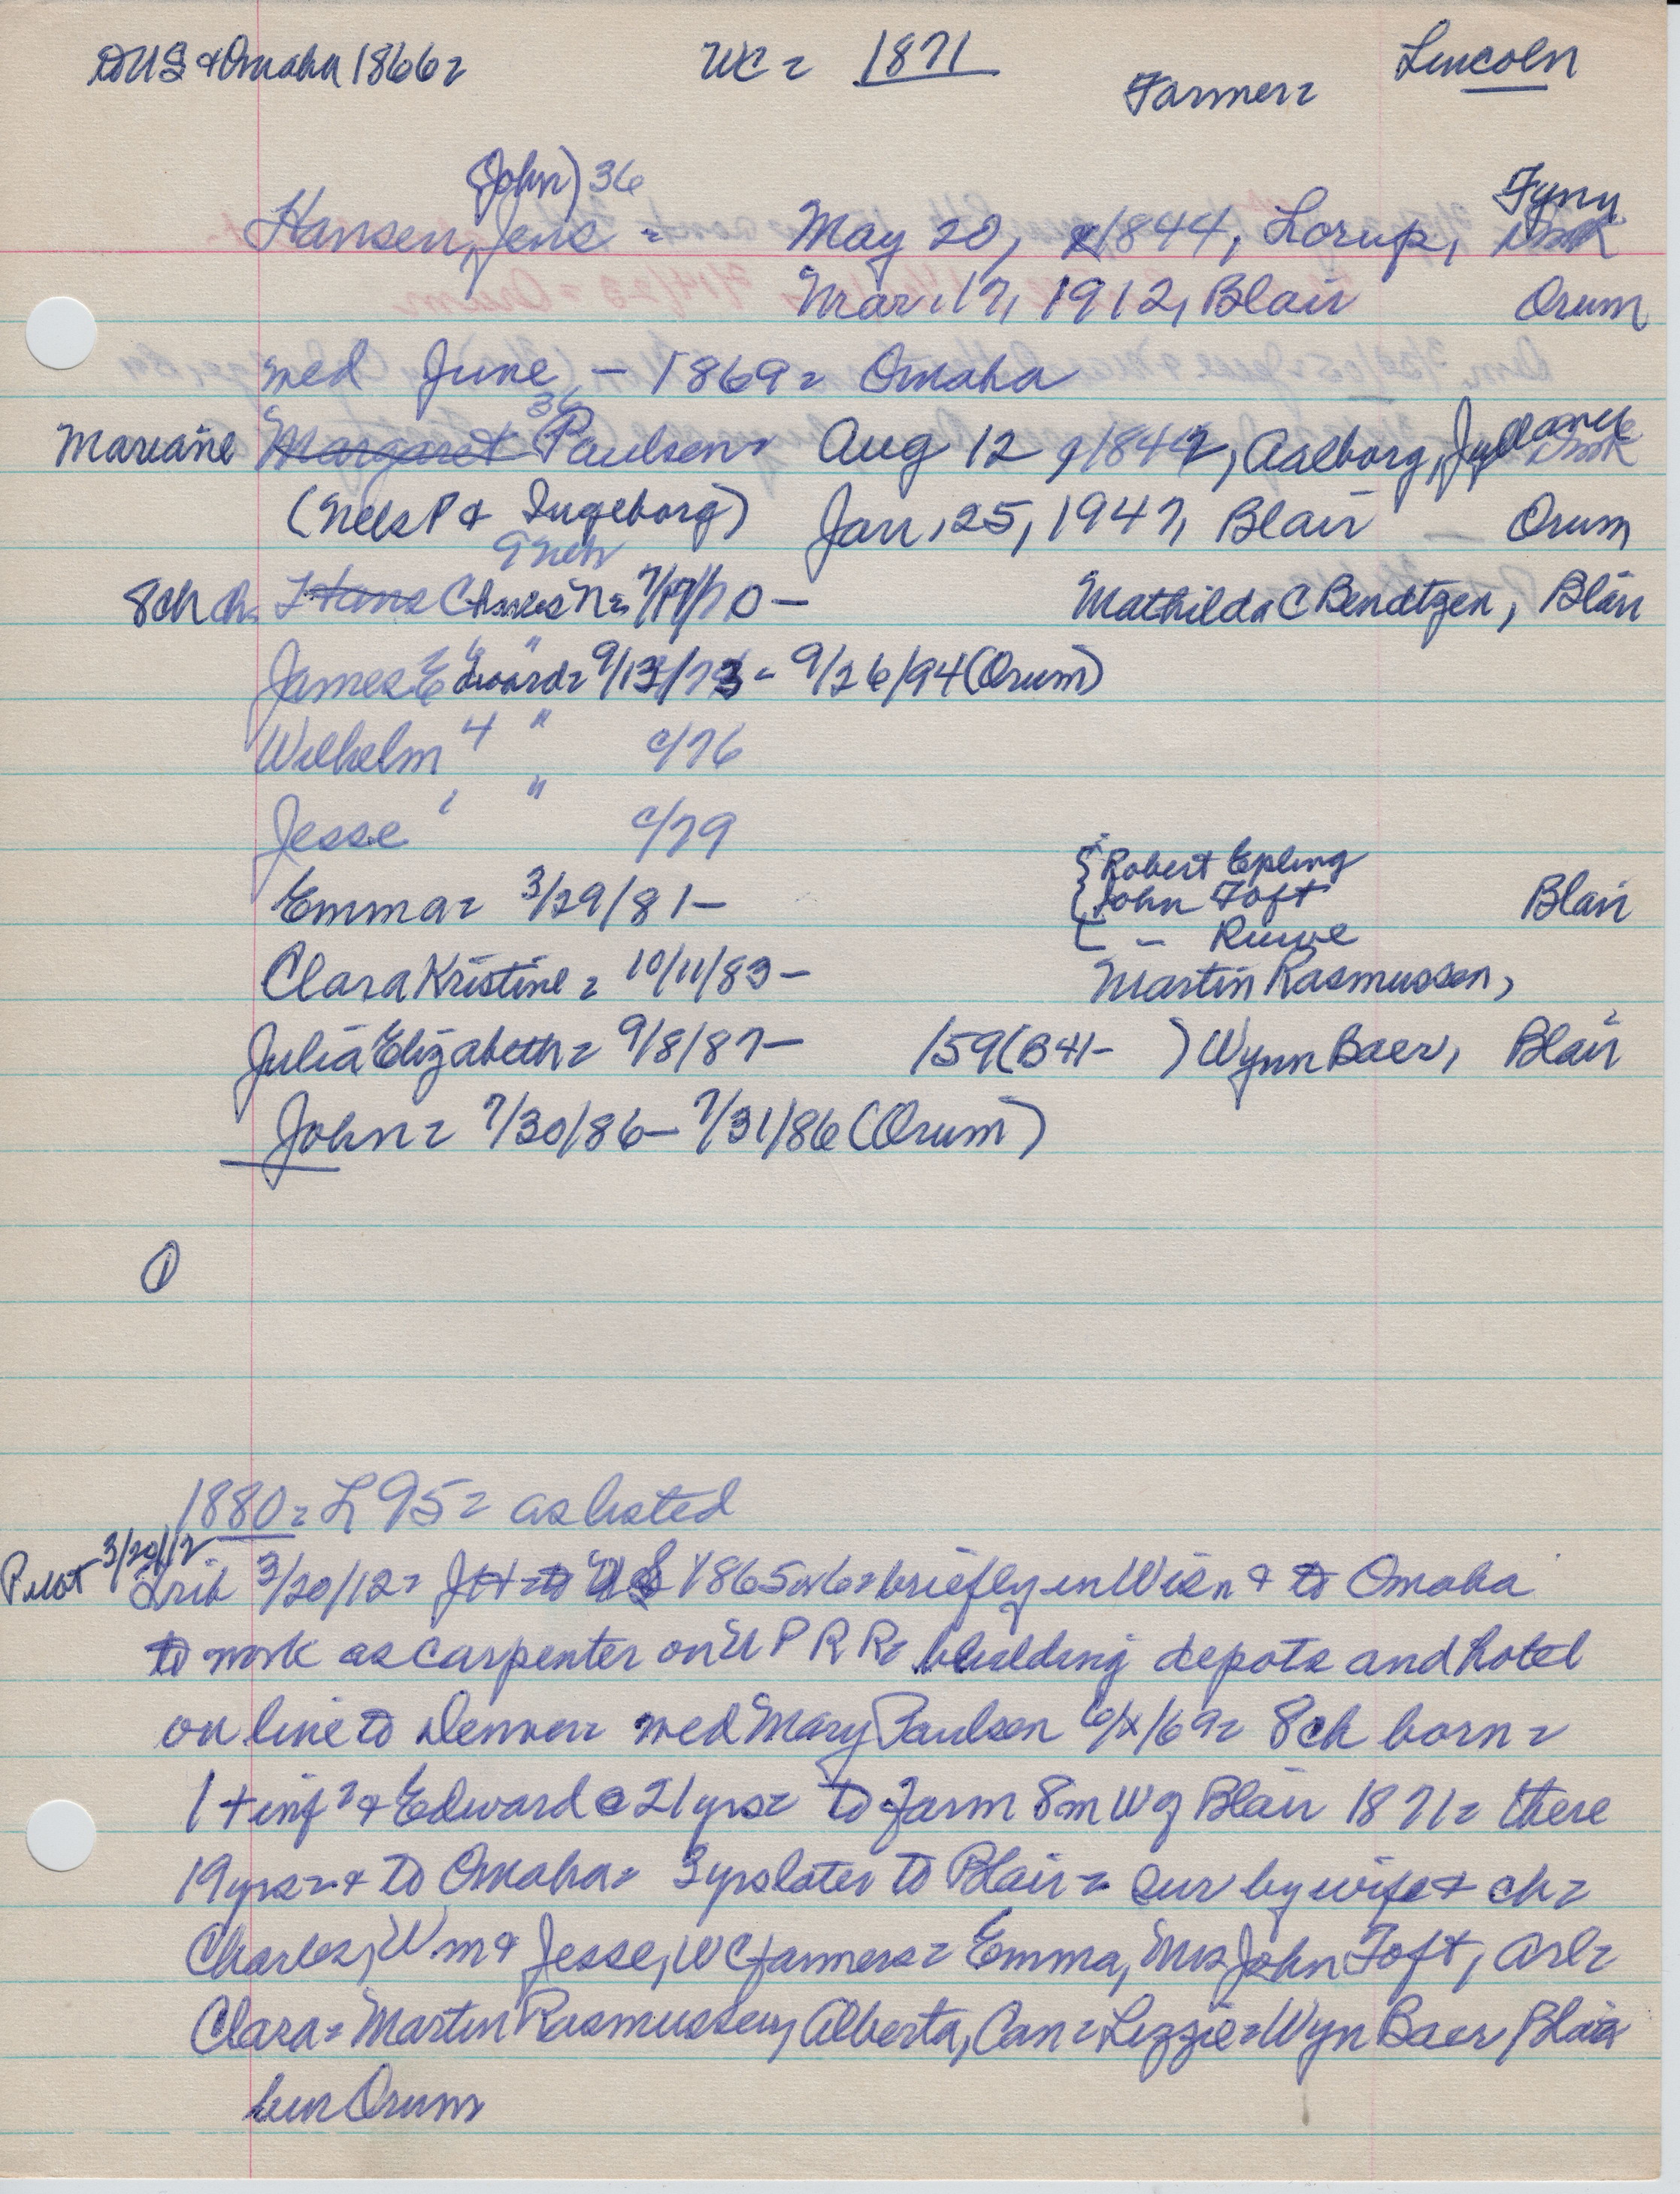 to US & Omaha 1866=
WC = 1871
Farmer=
Lincoln
(John) 36
Fyny
Hansen, Jens = May 20, 1844, Lorup, Dmk
Mar. 17, 1912, Blair Orum
med June - 1869= Omaha
36
Mareane Margaret Paulsen= Aug 12, 1842, Aalborg, Jylland Dmk
(Nels P & Ingeborg) Jan, 25, 1947, Blair - Orum
9 Neb
8ch ch. Hans Charles N= 7/17/70 - Mathilda C Bendtzen, Blair
James Edward= 6 " 9/13/73 - 9/26/94 (Orum)
Wilhelm 4 " c/76
Jesse 1 " c/79
{ Robert Epling
Emma= 3/29/81- { John Toft Blair
- Ruwe
Clara Kristine= 10/11/83- Martin Rasmussen,
Julia Elizabeth= 9/8/87- /59(B41- ) Wynn Baer, Blair
John= 7/30/86- 7/31/86 (Orum)
1
1880= L95= as listed
Pilot 3/20/12
Trib 3/20/12= JH to US 1865or6= briefly in Wisn & to Omaha
to work as carpenter on U P R R= building depots and hotel
on line to Denver= med Mary Paulsen 6/x/69= 8ch born=
1 + inf= & Edward @ 21yrs= to farm 8m W of Blair 1871= there
19yrs= & to Omaha= 3yrs later to Blair= sur by wife & ch=
Charles, Wm & Jesse, WC farmers= Emma, Mrs John Toft, Arl=
Clara= Martin Rasmussen, Alberta, Can= Lizzie= Wyn Baer, Blair
bur Orum